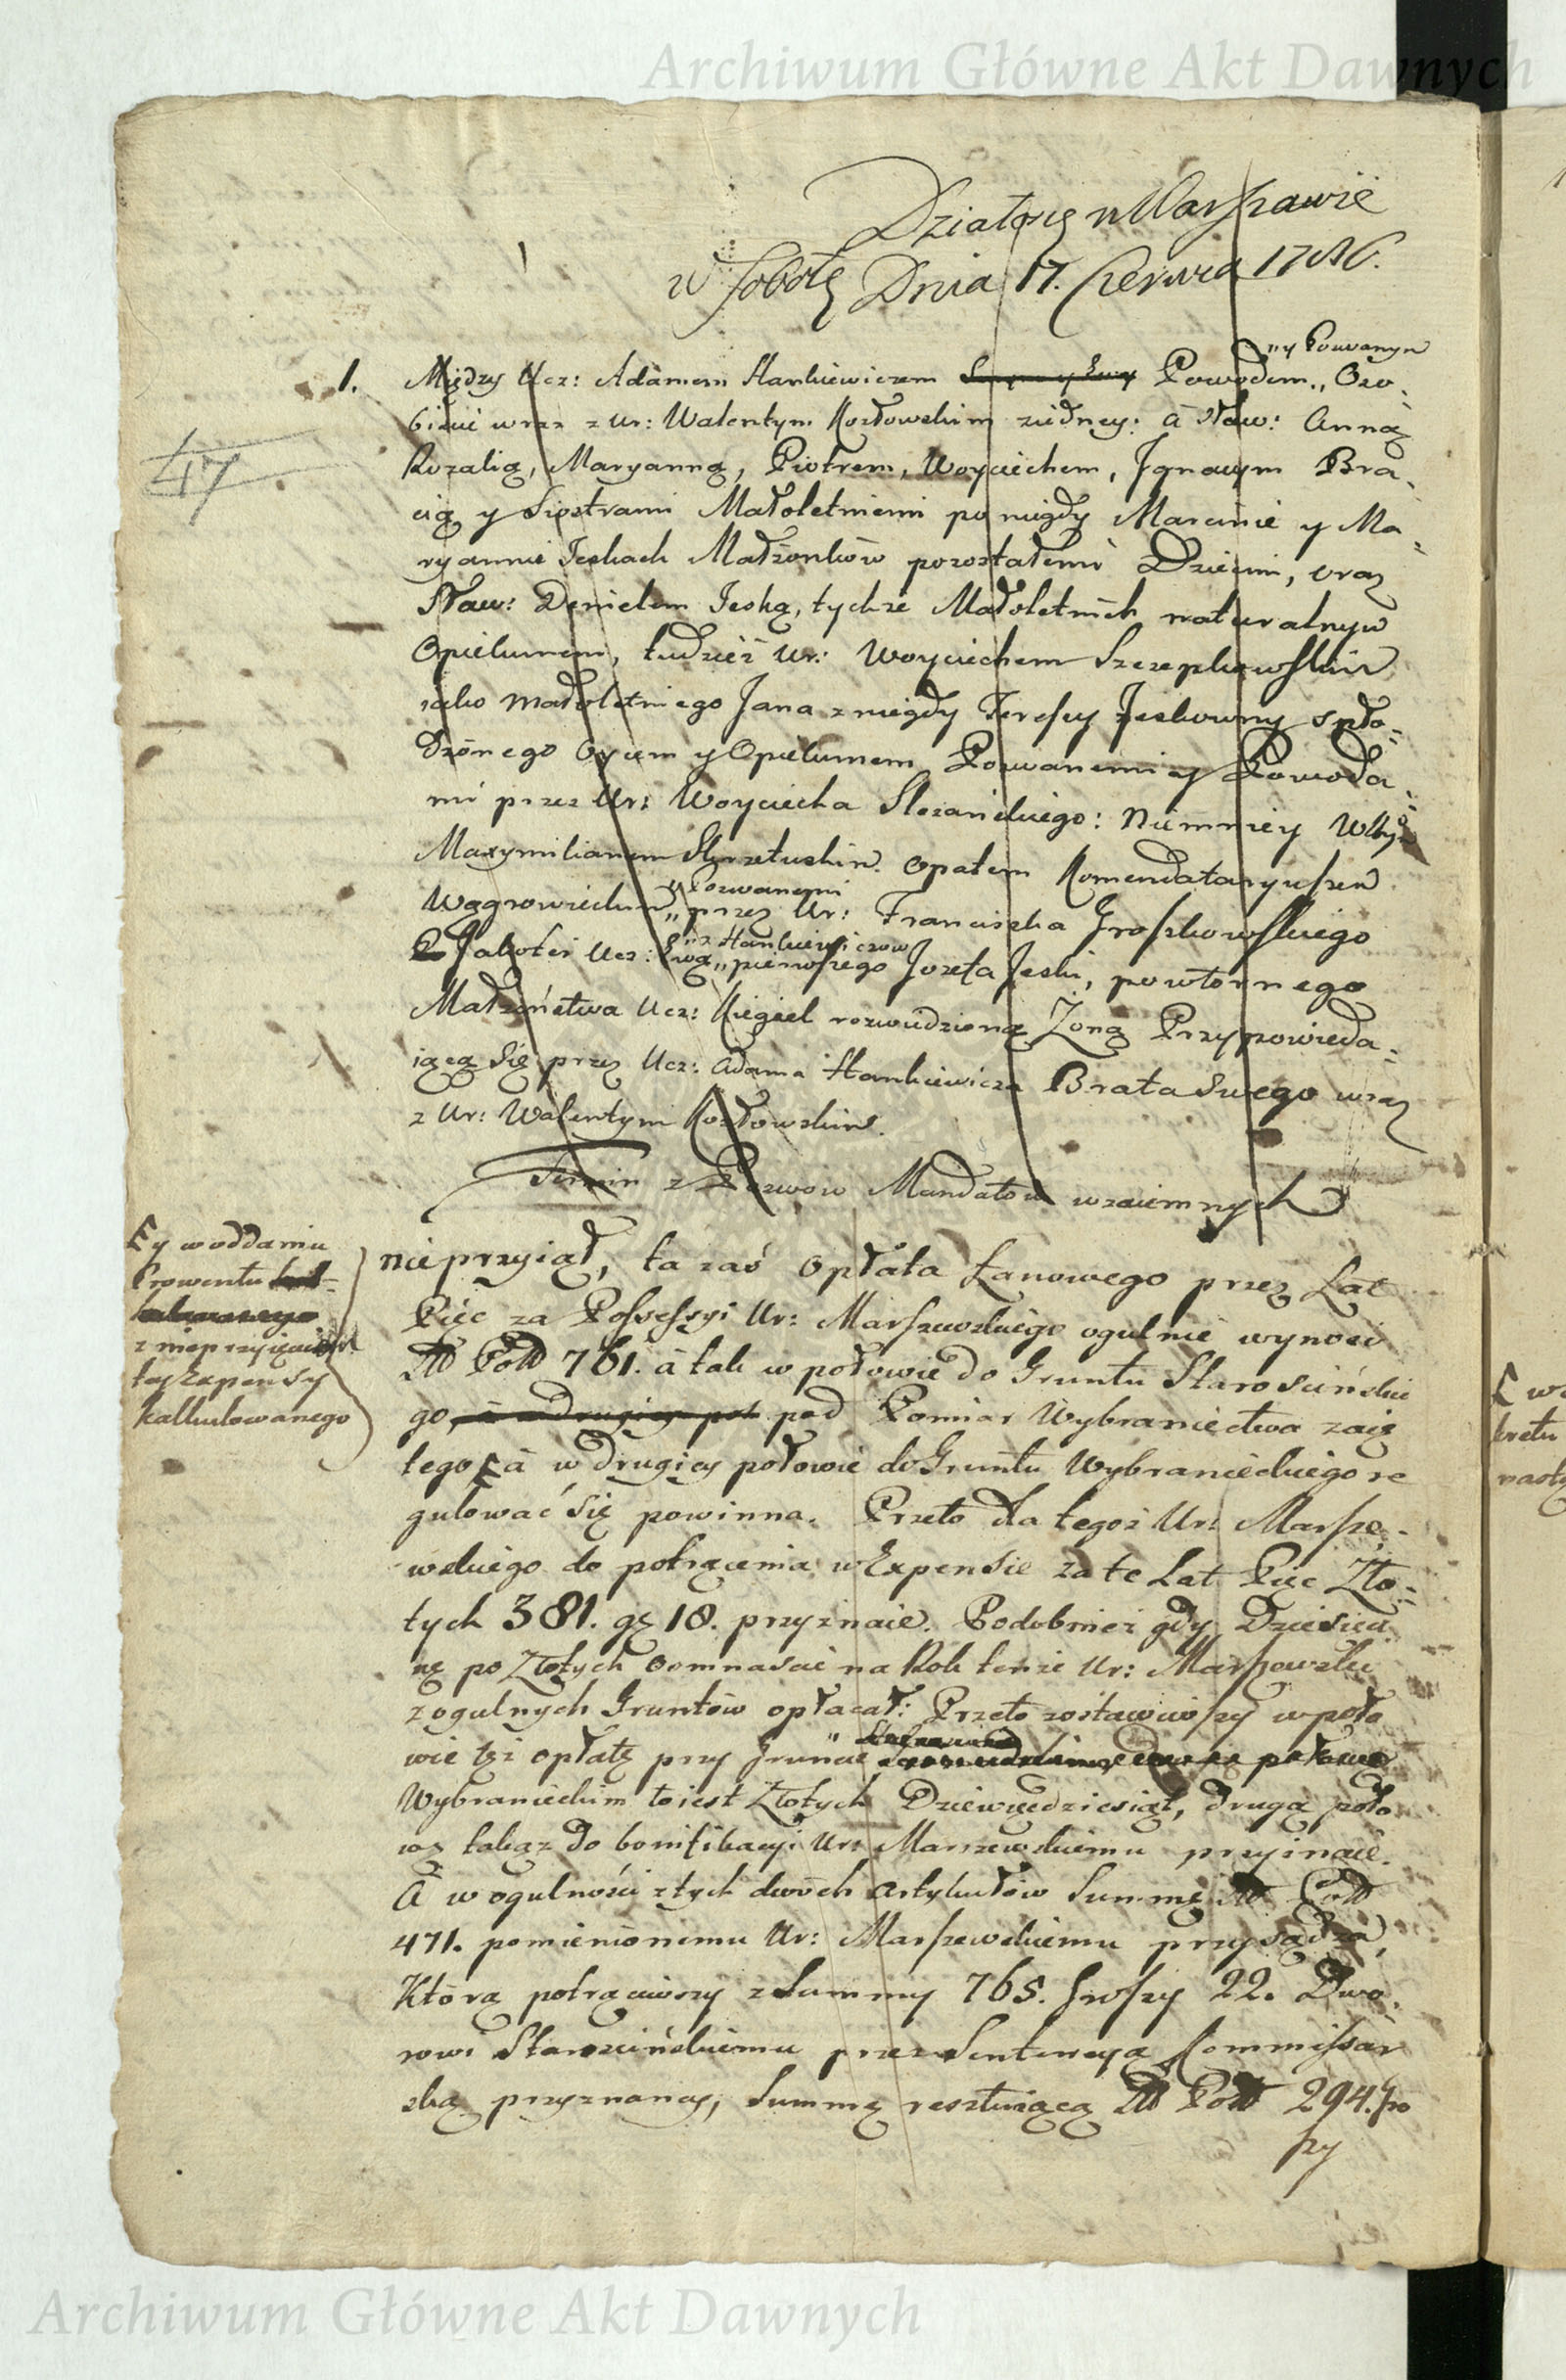 Archiwum Główne Akt Dawnych
Działo się w Warszawie
w Sobotę Dnia 17. Czerwca 1786.
"y Pozwanym
1. Między Ucz: Adamem Hankiewiczem Powodem,, Oso-
biście wraz z Ur: Walentym Kozłowskim ziedney: à Sław: Anną
47
Rozalią, Maryanną, Piotrem, Woyciechem, Jgnacym Bra-
cią y Siostrami Małoletniemi po niegdy Marcinie y Ma-
ryannie Jeskach Małżonków pozostałemi Dziećmi, oraz
Sław: Danielem Jeską, tychże Małoletnich naturalnym
Opiekunem, tudzież Ur: Woyciechem Szczepkowskim
iako małoletniego Jana z niegdy Teressy Jeskowny spło-
dzonego Oycem y Opiekunem Pozwanemi y Powoda-
mi przez Ur: Woyciecha Slozanskiego: Niemniey WJX
Maxymilianem Skrzetuskim Opatem Komendataryuszem
Wągrowieckim,, przez Ur: Franciszka Groszkowskiego
"Pozwanemi
Jakoteż Ucz: Ewą,, pierwszego Jozefa Jeski, powtornego
"z Hankiewiczow
Małżeństwa Ucz: Kiegiel rozwiedzioną Żoną Przypowieda-
iącą się przez Ucz: Adama Hankiewicza Brata swego wraz
z Ur: Walentym Kozłowskim.
Termin z Pozwow Mandatow wzaiemnych
y w oddaniu
Prowentu
z nieprzyięciem
tey Expensy
kalkulowanego
nieprzyiął, ta zaś Opłata Łanowego przez Lat
Pięc za Possessyi Ur: Marszewskiego ogulnie wynosi
Zł Pol 761. à tak w połowie do Gruntu Starościńskie
go, à w drugiey poł pod Pomiar Wybraniectwa zaię
tego à w drugiey połowie do Gruntu Wybranieckiego re
gulować się powinna. Przeto dla tegoż Ur: Marsze-
wskiego do potrącenia w Expensie za te Lat Pięc Zło-
tych 381. gr 18. przyznaie. Podobnież gdy Dziesięci
nę po Złotych ośmnaście na Rok tenże Ur: Marszewski
z ogulnych Gruntow opłacał: Przeto zostawiwszy w poło
wie tęż opłatę przy Gruncie
Wybranieckim to iest Złotych Dziewięcdziesiąt, drugą poło
wę takąż do bonifikacyi Ur: Marszewskiemu przyznaie.
A w ogulności z tych dwóch Artykułow Summę Zł Pol
471. pomienionemu Ur: Marszewskiemu przysądza,
Którą potrąciwszy z Summy 765. Groszy 22. Dwo-
rowi Starościńskiemu przez Sentencyą Kommissar
ską przyznaney, Summę resztuiącą Zł Pol 294. gro
szy
w
kretu
Archiwum Główne Akt Dawnych